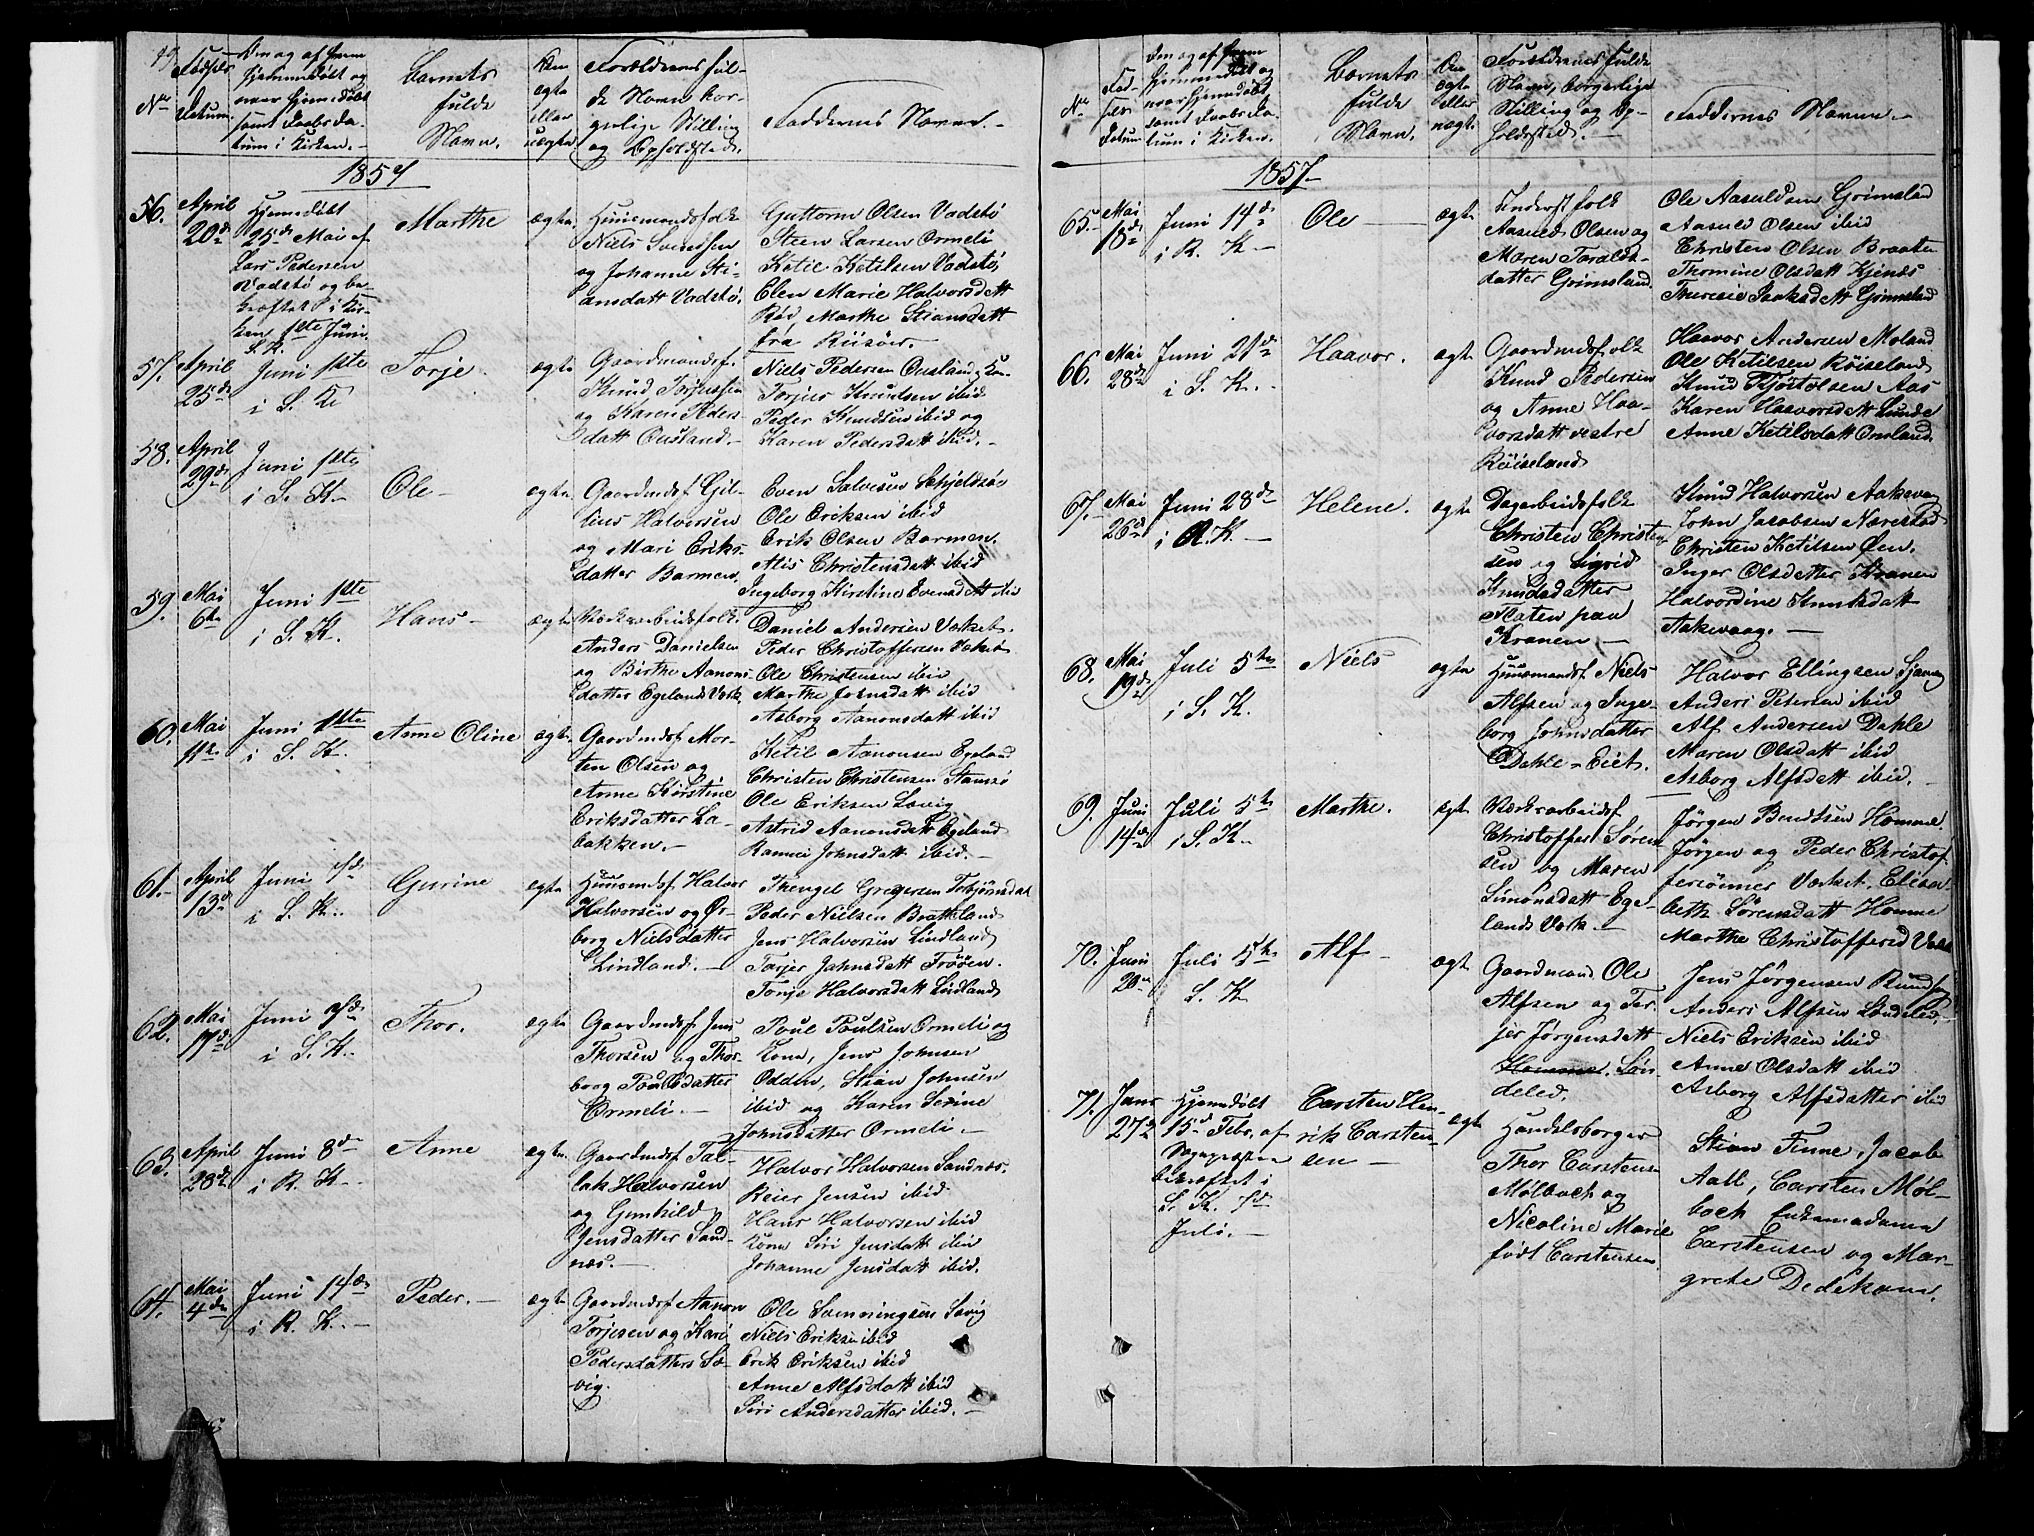 No
Fødsels
Datum
Om og af hvem
hjemmedøbt og
naar hjemmedøbt
samt Daabsda-
tum i Kirken.-
Barnets
fulde
Navn.
Om
ægte
eller
uægte
Forældrenes ful-
de Navn bor-
gerlige Stilling
og Opholdsted.
Faddernes Navne.-
1857
56. April
20de
Hjemmedøbt
25de Mai af
Lars Pedersen
Vadstø og be-
kræftet i Kir-
ken 1ste Juni
S. K.
Marthe
ægte
Huusmandsfolk
Niels Svendsen
og Johanne Sti-
ansdatt Vadstø,
Guttorm Olsen Vadstø
Steen Larsen Ormeli
Ketil Ketilsen Vadstø,
Elen Marie Halvorsdatt
Rød Marthe Stiansdatt
fra Riisøer.
57. April
25de
Juni 1ste
i S. K
Torje.
ægte
Gaardmandsf.
Knud Torjussen
og Karen Peders-
datt Ousland.-
Niels Pedersen Ousland, Kon-
Torjer Knudsen ibid
Peder Knudsen ibid og
Karen Pedersdatt ibid.-
58. April
29de
Juni 1ste
i S. K.-
Ole-
ægte
Gaardmdsf Gil-
bius Halvorsen
og Mari Eriks-
datter Barmen.
Even Salvesen Schjeldsø-
Ole Eriksen ibid
Erik Olsen Barmen.
Alis Christensdatt ibid
Ingeborg Kirstine Evensdatt ibi
59. Mai
6te
Juni 1ste
i S. K.
Hans-
ægte
Værksarbeidsfolk.
Anders Danielsen
og Birthe Aanons-
datter Egelands Værk
Daniel Andersen Værket.
Peder Christoffersen Værket
Ole Christensen ibid
Marthe Johnsdatt ibid
Asborg Aanonsdatt ibid
60. Mai
11te
Juni 1ste
i S. K.-
Anne Oline
ægte
Gaardmdsf Mor-
ten Olsen og
Anne Kirstine
Eriksdatter La-
bakken.-
Ketil Aanonsen Egeland
Christen Christensen Stamsø
Ole Eriksen Lavig
Astrid Aanonsdatt Egeland
Ramei Johnsdatt ibid.-
61. April
13de
Juni 7de
i S. K..
Gurine
ægte
Huusmdsf. Halvor
Halvorsen og Ør-
borg Nielsdatter
Lindland.-
Thengel Gregersen Torbjørnsdal
Peder Nielsen Bratland
Jens Halvorsen Lindland
Torjer Jahnsdatt Trøøen.
Tonje Halvorsdatt Lindland
62. Mai
17de
Juni 7de
i S. K..
Thor.
ægte
Gaardmdsf Jens
Thorsen og Thor-
borg Poulsdatter
Ormeli.-
Poul Poulsen Ormeli og
Kone, Jens Johnsen
Odden, Stian Johnsen
ibid og Karen Serine
Johnsdatter Ormeli.-
63. April
28de
Juni 8de
i R. K.-
Anne
ægte.
Gaardmdsf Tal-
lak Halvorsen
og Gunhild
Jensdatter Sand-
næs.-
Halvor Halvorsen Sandnæs.
Reier Jensen ibid
Hans Halvorsen ibid
Kone Siri Jensdatt ibid
Johanne Jensdatt ibid.
64. Mai
4de
Juni 14de
i R. K.-
Peder.-
ægte
Gaardmdsf Aanon
Torjesen og Kari
Pedersdatter Sø-
vig.
Ole Svenningsen Søvig
Niels Eriksen ibid
Erik Eriksen ibid
Anne Alfsdatt ibid
Siri Andersdatter ibid.-
No
Fød-
sels
Datum
Om og af hvem
hjemmedøbt og
naar hjemmedøbt
samt Daabsda-
tum i Kirken.
Barnets
fulde
Navn.
Om
ægte
eller
uægte
Forældrenes fulde
Navn, borgerlige
Stilling og Op-
holdssted.
Faddernes Navne.-
1857-
65. Mai
18de
Juni 14de
i R. K-
Ole-
ægte
Inderstfolk
Aasuld Olsen og
Maren Taralds-
datter Grimsland
Ole Aasuldsen Grimsland
Aasuld Olsen ibid
Christen Olsen Braaten
Thomine Olsdatt Kjenæs
Therese Isaksdatt Grimsland
66. Mai
28de
Juni 21de
i S. K.-
Haavor.
ægte
Gaardmdsfolk
Knud Pedersen
og Anne Haa-
vorsdatt vestre
Røiseland
Haavor Andersen Moland
Ole Ketilsen Røiseland
Knud Kjøstolsen Aas
Karen Haavorsdatt Lunde
Anne Ketilsdatt Omland.
67. Mai
26de
Juni 28de
i R. K.-
Helene.
ægte
Dagarbeidsfolk
Christen Christen-
sen og Sigrid
Knudsdatter
Flaten paa
Kranen-
Knud Halvorsen Aakevaag
John Jacobsen Narestad
Christen Ketilsen Øen.
Inger Olsdatter Kranen
Halvordine Knutsdatt
Aakevaag.-
68. Mai
19de
Juli 5te
i S. K.
Niels
ægte
Huusmandsf Niels
Alfsen og Inge-
borg Johnsdatter
Dahle-Eiet.
Halvor Ellingsen
Anders Petersen ibid
Alf Andersen Dahle
Maren Olsdatt ibid
Asborg Alfsdatt ibid.-
69. Juni
14de
Juli 5te
i S. K..
Marthe.
ægte
Værksarbeidsf
Christoffer Søren-
sen og Maren
Simonsdatt Ege-
lands Værk.-
Jørgen Bendtsen Homme.
Jørgen og Peder Christof-
fersønner Værket. Elisa-
beth Sørensdatt Homme
Marthe Christoffersd Værk
70. Juni
20de
Juli 5te
S. K
Alf-
ægte
Gaardmand Ole
Alfsen og Ter-
jer Jørgensdatt
Homme. Søn-
deled.
Jens Jørgensen
Anders Alfsen Søndeled.
Niels Eriksen ibid
Anne Olsdatt ibid
Asborg Alfsdatter ibid
71. Janr
27de
Hjemmdøbt
15de Febr. af
Sognepræsten
bekræftet i
S. K. 7de
Juli.-
Carsten Hen-
rik Carsten-
sen-
ægte
Handelsborger
Thor Carstens
Mølbach og
Nicoline Marie
født Carstensen
Stian Finne, Jacob
Aall, Carsten Møl-
bach Enkemadame
Carstensen og Mar-
grete Dedekam.